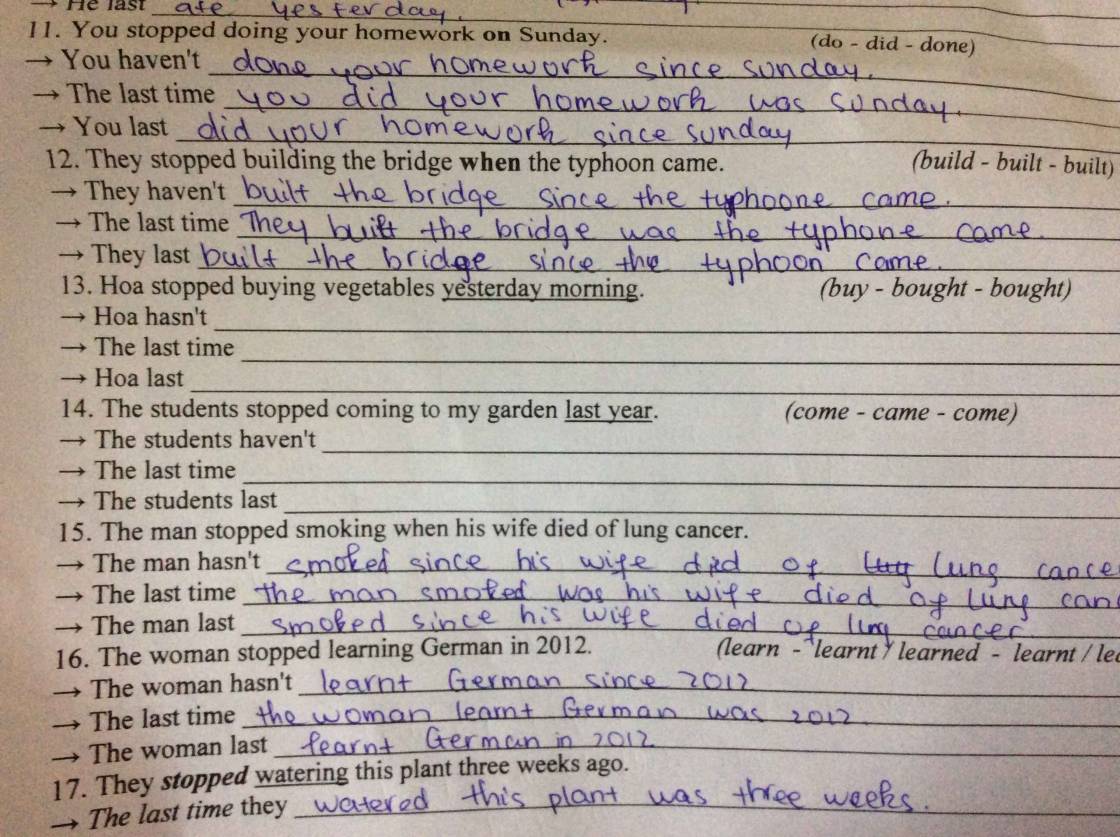 → He last ate yesterday.
11. You stopped doing your homework on Sunday. (do - did - done)
→ You haven't done your homework since sunday.
→ The last time you did your homework was sunday.
→ You last did your homework since sunday
12. They stopped building the bridge when the typhoon came. (build - built - built)
→ They haven't built the bridge since the typhoone came.
→ The last time They built the bridge was the typhone came.
→ They last built the bridge since the typhoon came.
13. Hoa stopped buying vegetables yesterday morning. (buy - bought - bought)
→ Hoa hasn't
→ The last time
→ Hoa last
14. The students stopped coming to my garden last year. (come - came - come)
→ The students haven't
→ The last time
→ The students last
15. The man stopped smoking when his wife died of lung cancer.
→ The man hasn't smoked since his wife died of lung cance
→ The last time the man smoked was his wife died of lung can
→ The man last smoked since his wife died of lung cancer
16. The woman stopped learning German in 2012. (learn - learnt / learned - learnt / lea
→ The woman hasn't learnt German since 2012
→ The last time the woman learnt German was 2012
→ The woman last learnt German in 2012
17. They stopped watering this plant three weeks ago.
→ The last time they watered this plant was three weeks.